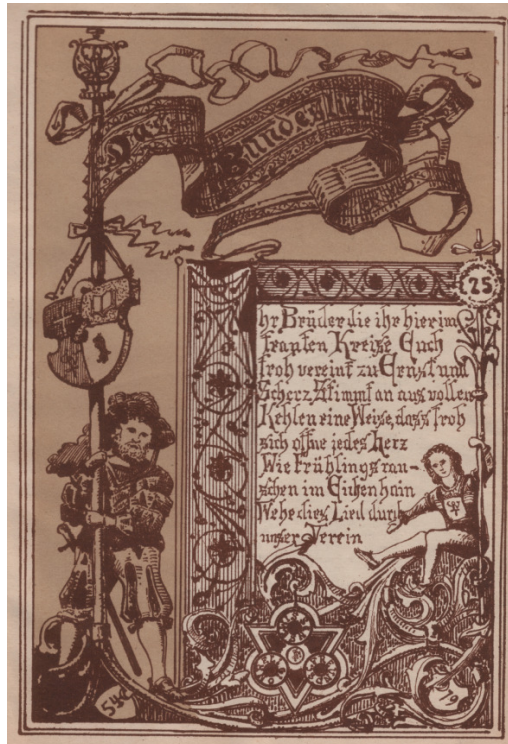 Das Bundeslied
25
Ihr Brüder die ihr hier im
trauten Kreise Euch
froh vereint zu Ernst und
Scherz Stimmt an aus vollen
Kehlen eine Weise, dass froh
sich öffne jedes Herz
Wie Frühlingsrau-
schen im Eichenhain
Wehe dies Lied durch
unser Verein